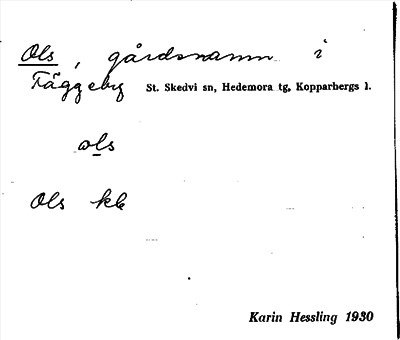 Ols, gårdsnamn i
Fäggeby St. Skedvi sn, Hedemora tg, Kopparbergs l.
ols
Ols kb
Karin Hessling 1930